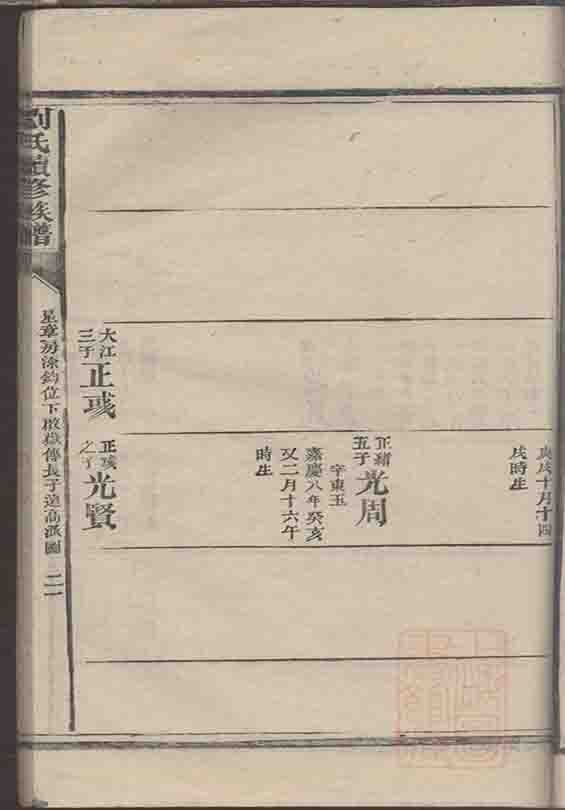 庚戌十月十四
戌時生
正緒
五子
光周
字東五
嘉慶八年癸亥
又二月十六午
時生
大江
三子
正彧
正彧
之子
光賢
劉氏續修族譜
星章房涂鈞位下啟嶽傳長子達高派圖
二一